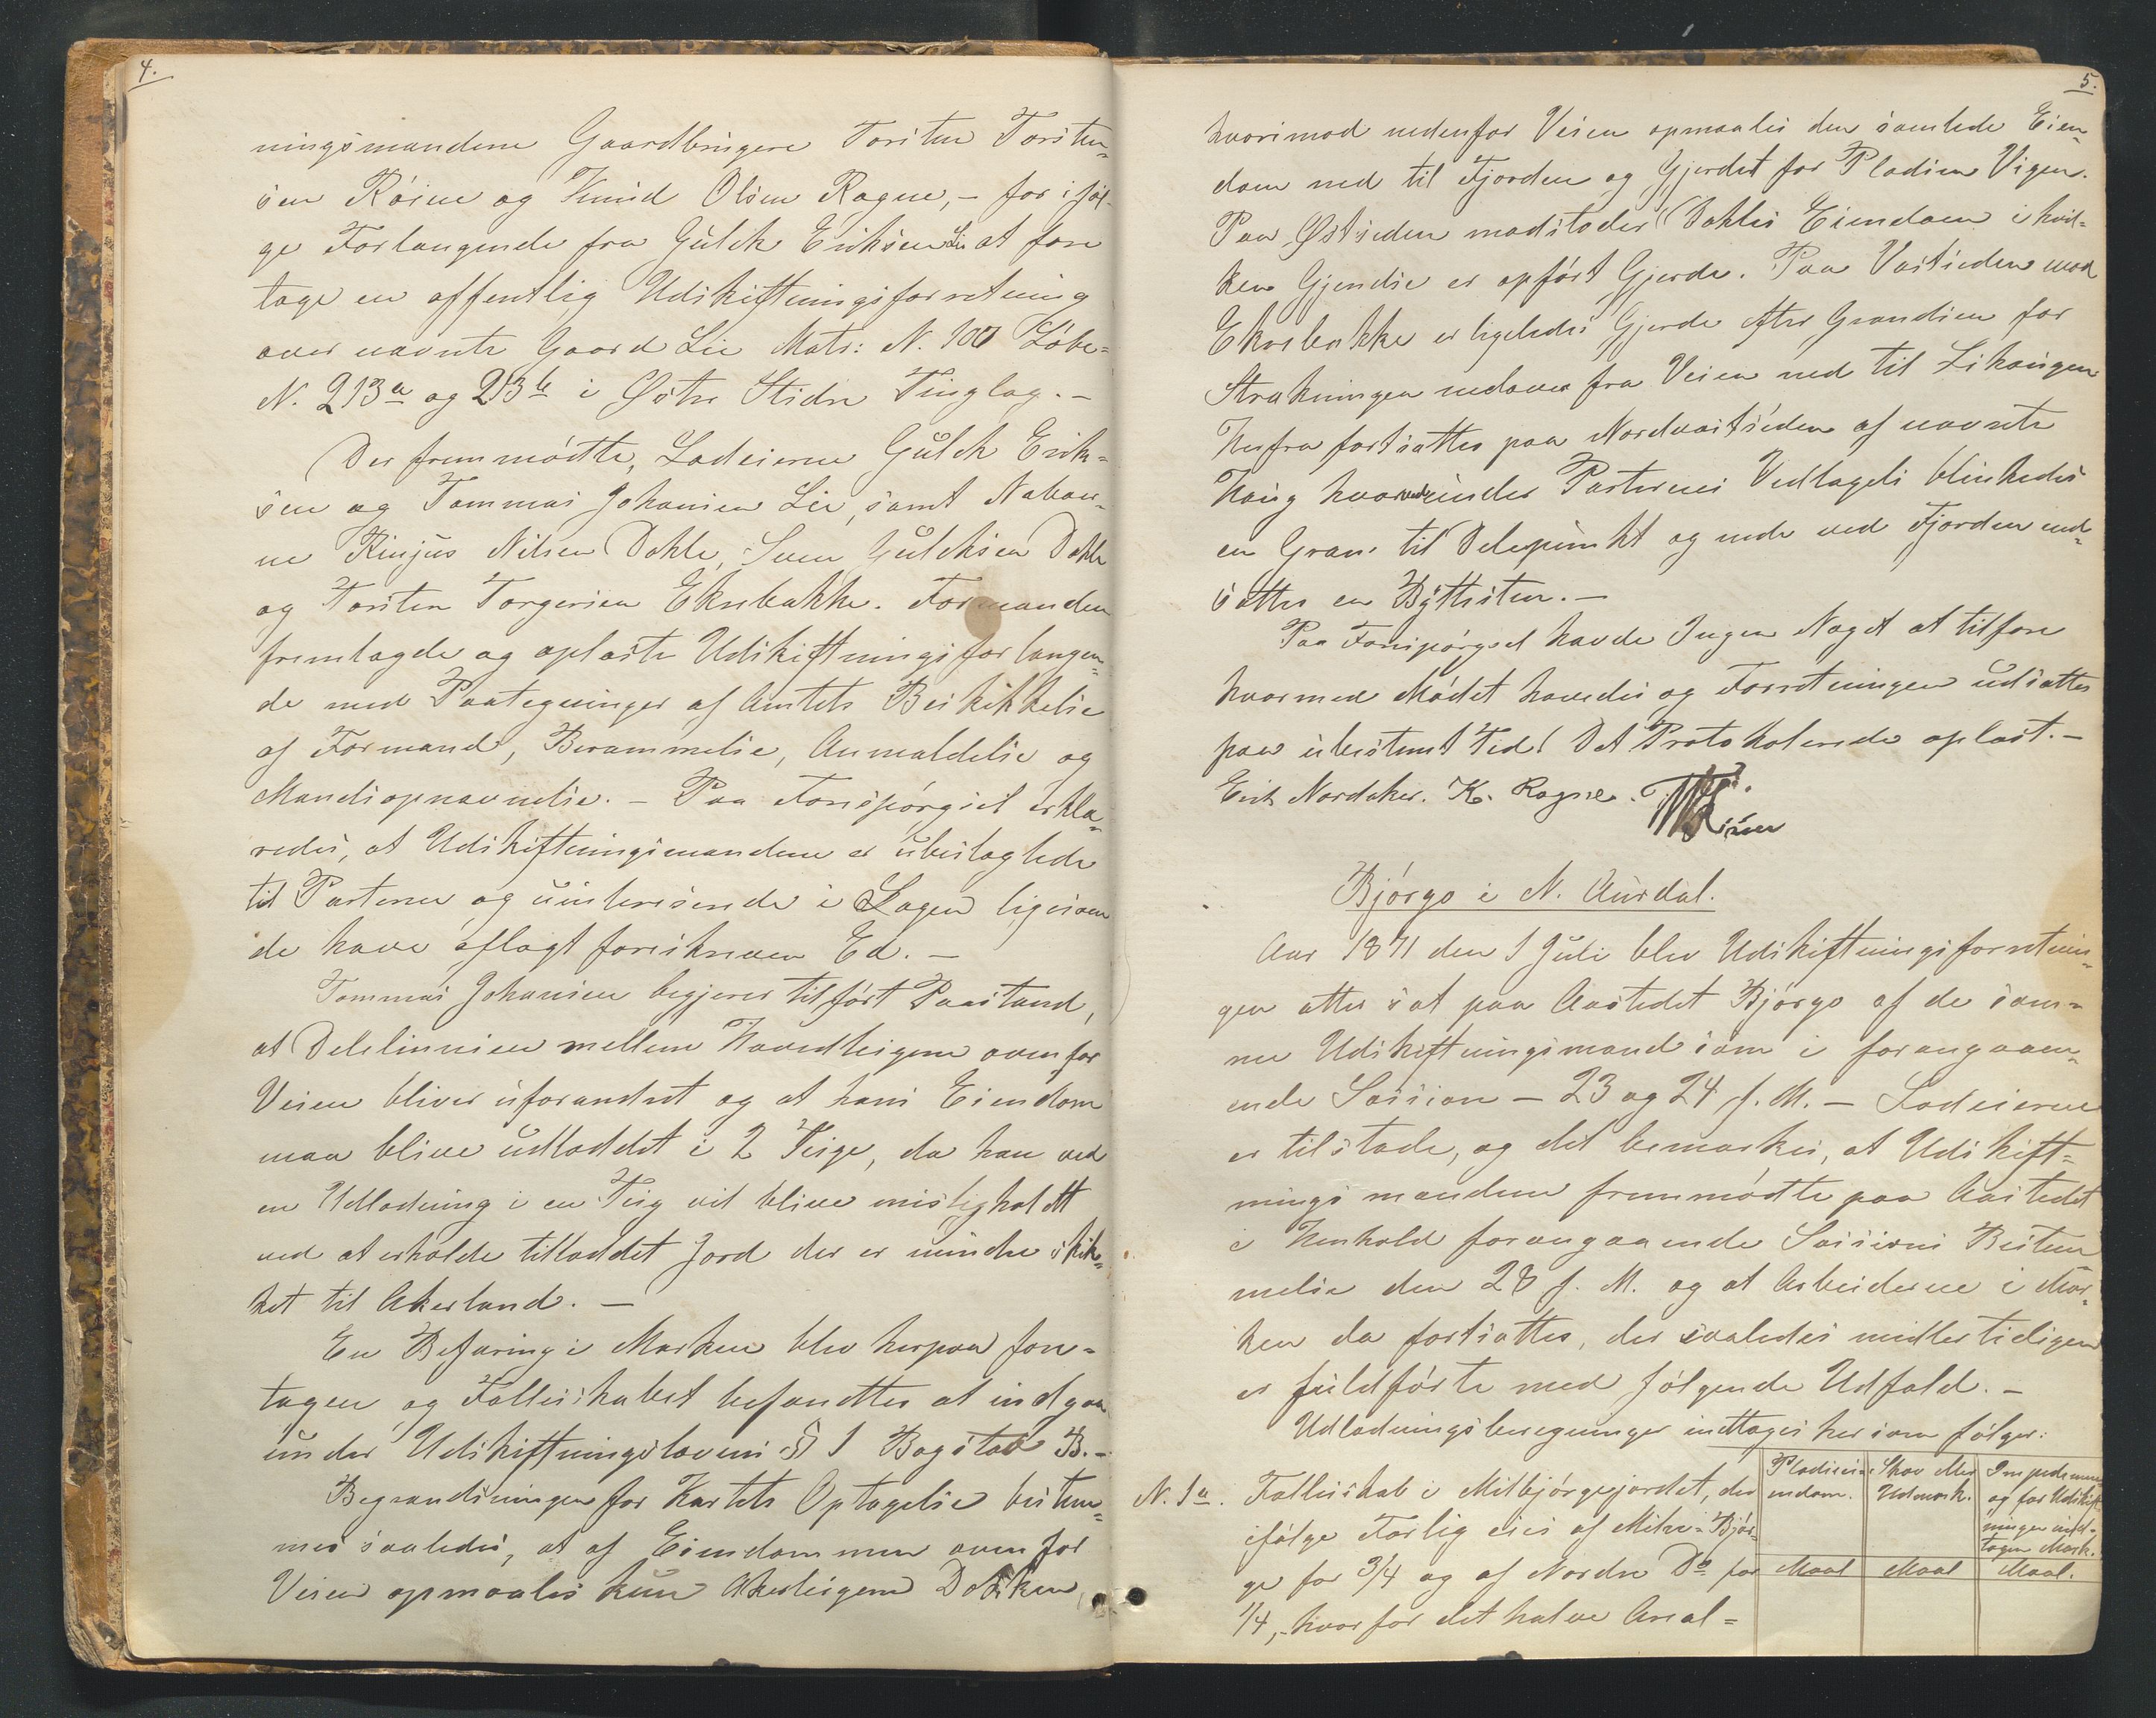 4.
ningsmændene Gaardbrugere Torsten Torsten-
sen Röine og Knud Olsen Ragne, – for iföl-
ge Forlangende fra Gulek Eriksen Lie at fore
tage en offentlig Udskiftningsforretning
over nævnte Gaard Lie Matr: N. 100 Löbe-
N. 213a og 213b i Østre Slidre Tinglag. –
Der fremmödte, Lodeierne Gulek Erik-
sen og Tommas Johansen Lie, samt Naboer-
ne Kinjus Nilsen Dokle, Sven Guleksen Dokle
og Torsten Torgersen Eknebakke. Formanden
fremlagde og oplæste Udskiftningsforlangen-
de med Paategninger af Amtets Beskikkelse
af Formand, Berammelse, Anmeldelse og
Mandsopnævnelse. – Paa Forespörgsel erklæ-
redes, at Udskiftningsmændene er ubeslægtede
til Parterne og uinteresserede i Sagen ligesom
de have aflagt foreskreven Ed. –
Tommas Johansen begjerer tilfört Paastand,
at Delelinnien mellem Hovedteigene ovenfor
Veien bliver uforandret og at hans Eiendom
maa blive udloddet i 2 Teige, da han ved
en Udlodning i en Teig vil blive misligholdt
ved at erholde tilloddet Jord der er mindre skik-
ket til Akerland. –
En Befaring i Marken blev herpaa fore-
tagen og Fællesskabet befandtes at indgaa
under Udskiftningslovens § 1 Bogstav B. –
Begrændsningen for Kartets Optagelse bestem-
mes saaledes, at af Eiendommen ovenfor
Veien opmaales kun Akerteigene Dokken,
5.
hvorimod nedenfor Veien opmaales den samlede Eien-
dom ned til Fjorden og Gjerdet for Pladsen Vigen.
Paa Østsieden modstöder Dokles Eiendom i hvil-
ken Gjendse er opfört Gjerde. Paa Vestsieden mod
Eknebakke er ligeledes Gjerde efter Grændsen for
Strækningen nedover fra Veien ned til Lihaugen
Herfra fortsættes paa Nordvestsieden af nævnte
Haug hvor under Parternes Vedtagels blinkedes
en Gran til Delepunkt og nede ved Fjorden ned-
sattes en Byttesten. –
Paa Forespörgsel havde Ingen Noget at tilföre
hvormed Mödet hævedes og Forretningen udsattes
paa ubestemt Tid. Det Protokolerede oplæst. –
Erik Nordaker. K. Ragne. T. T. Röine
Björgo i N. Aurdal.
Aar 1871 den 1 Juli blev Udskiftningsforretnin-
gen atter sat paa Aastedet Björgo af de sam-
me Udskiftningsmænd som i forangaaen-
ende Session – 23 og 24 f. M. – Lodeierne
er tilstede, og det bemærkes, at Udskift-
nings mændene fremmödte paa Aastedet
i Henhold forangaaende Sessions Bestem
melse den 28 f. M. og at Arbeiderne i Mar-
ken da fortsattes, der saaledes midlertidigen
er fuldförte med fölgende Udfald. –
Udlodningsberegninger indtages her som fölger:
Pladsens Ei-
endom.
Skov eller
Udmark.
Impediment
og for Udskift
ningen und-
tagen Mark.
N. 1a. Fællesskab i Milbjörgejordet, der
ifölge Forlig eies af Mitre Björ-
ge for 3/4 og af Nordre Do for
Maal Maal Maal.
1/4, – hvorfor det halve Areal-